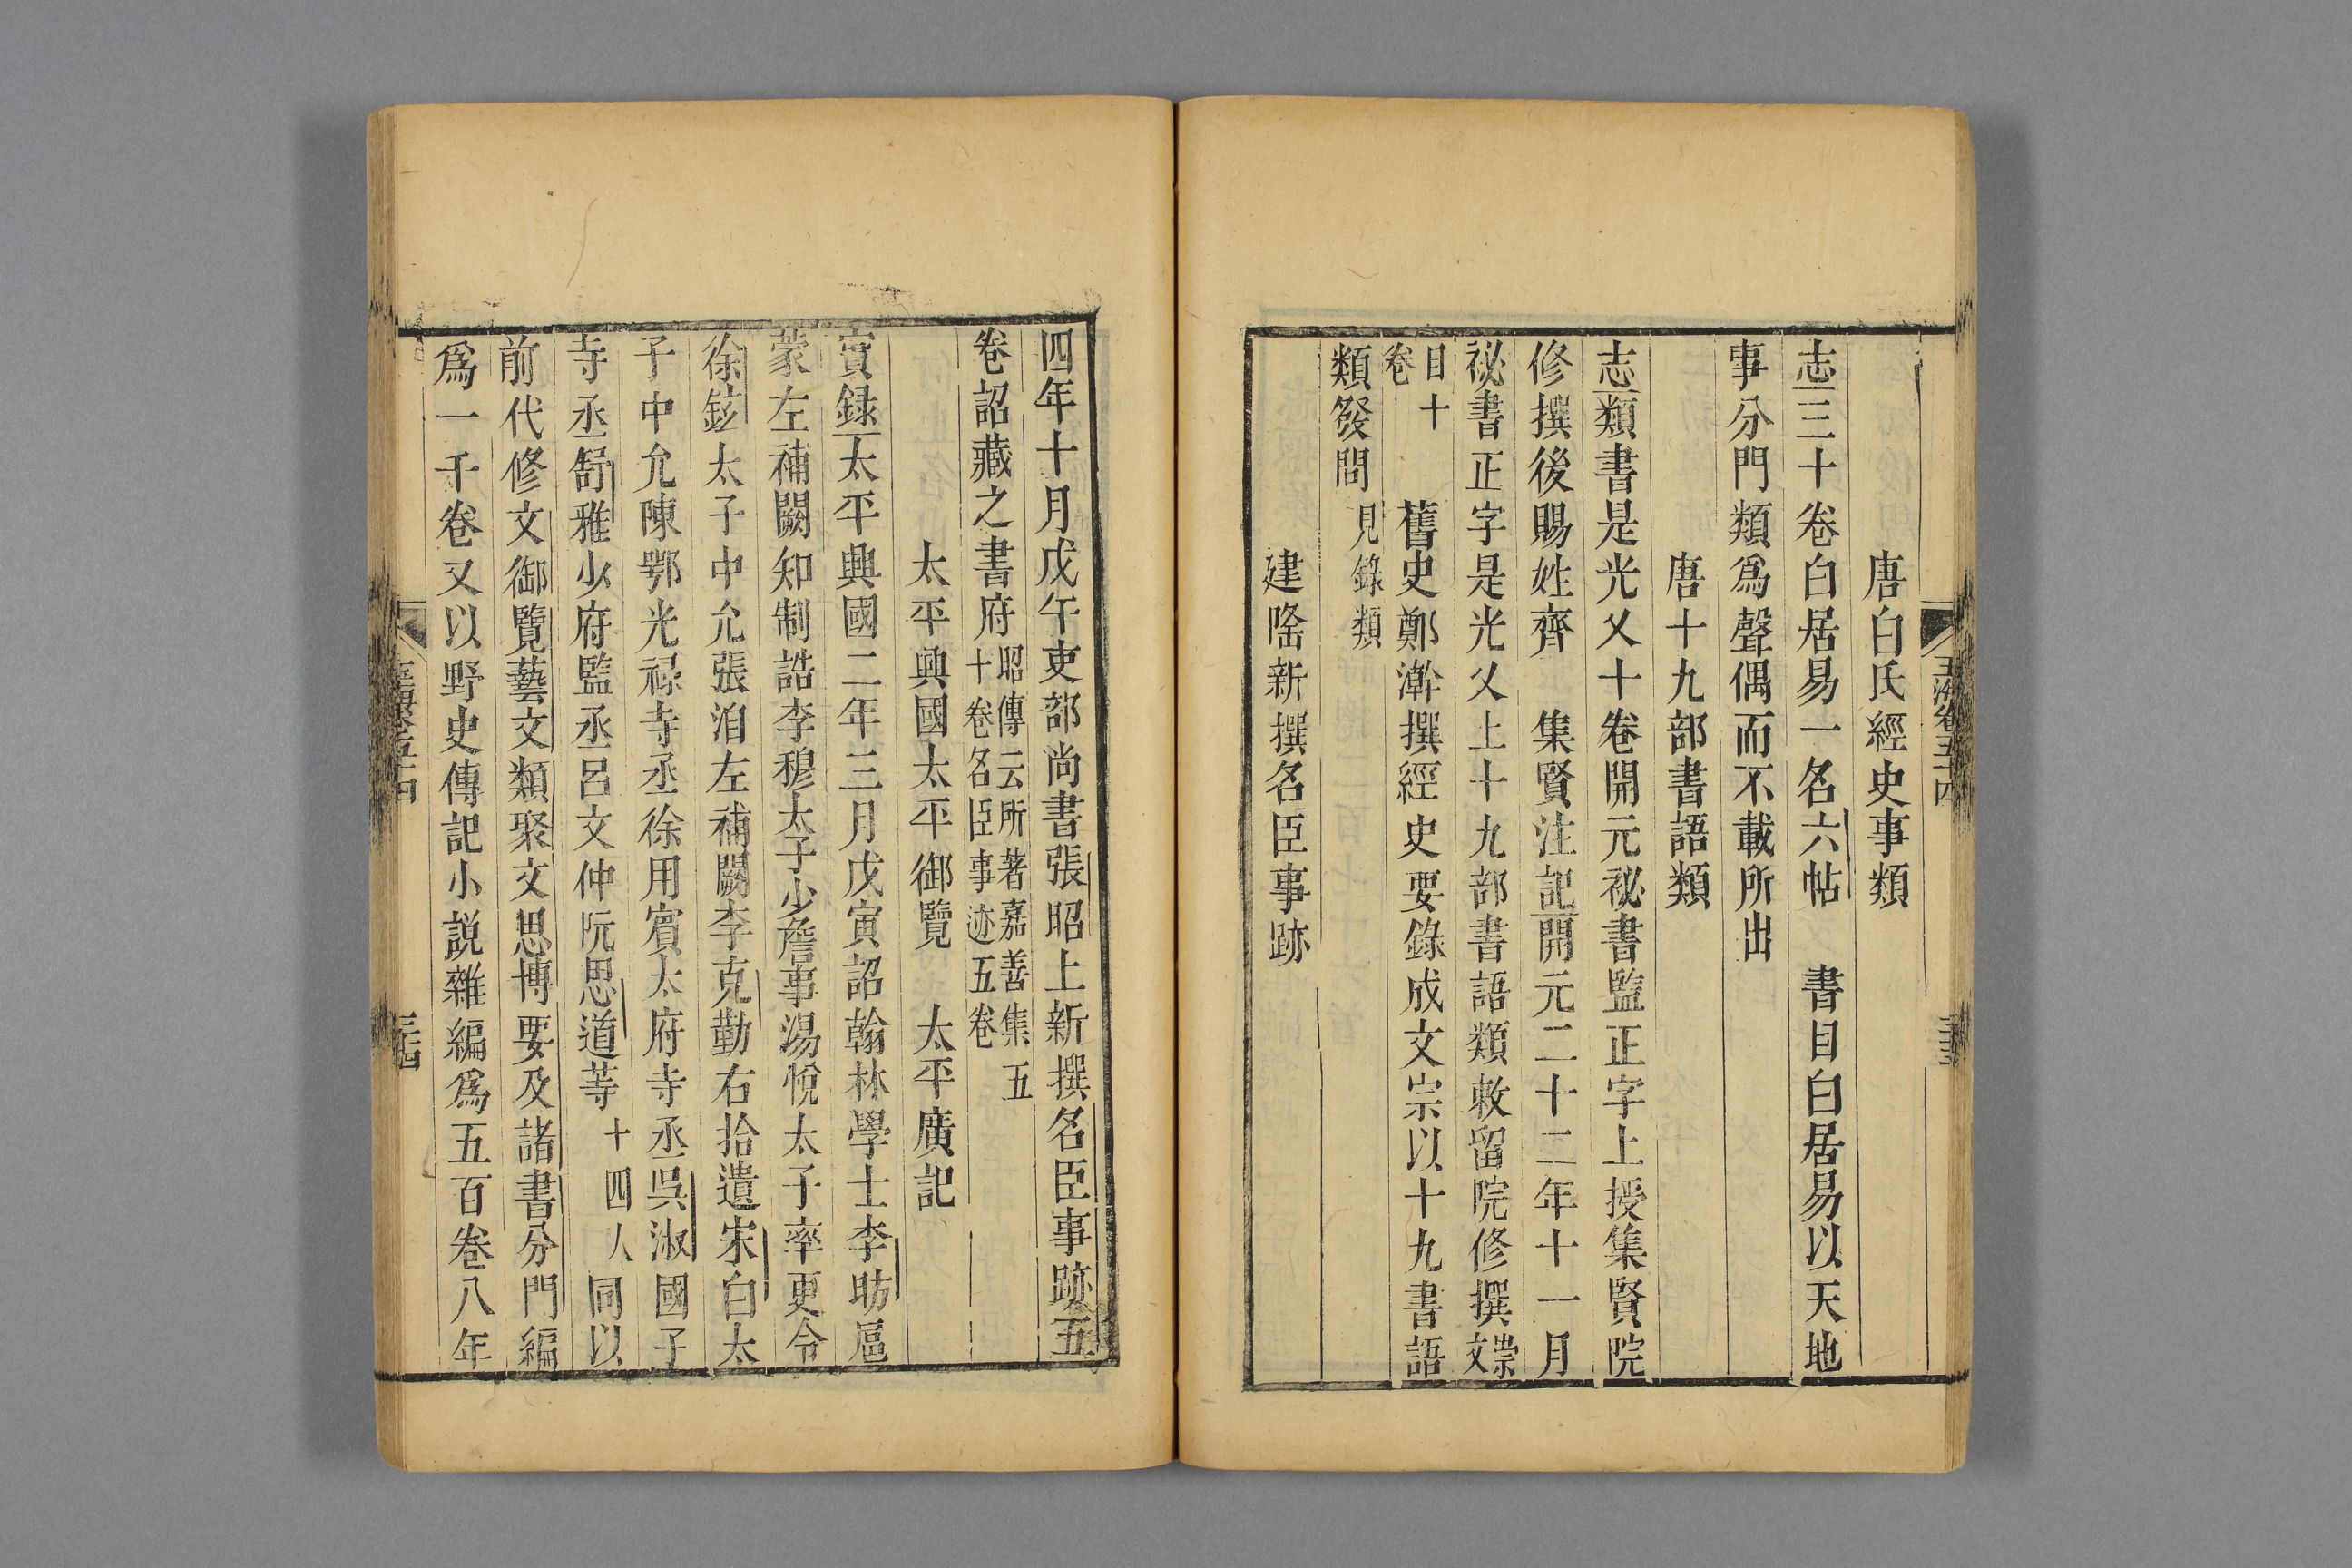 唐白氏經史事類
志三十卷白居易一名六帖　書目白居易以天地
事分門類爲聲偶而不載所出
唐十九部書語類
志類書是光乂十卷開元祕書監正字上授集賢院
修撰後賜姓齊　集賢注記開元二十二年十一月
祕書正字是光乂上十九部書語類敕留院修撰崇文
目十卷　舊史鄭澣撰經史要錄成文宗以十九書語
類發問見錄類
建隆新撰名臣事跡
四年十月戊午吏部尚書張昭上新撰名臣事跡五
卷詔藏之書府昭傳云所著嘉善集五十卷名臣事迹五卷
太平興國太平御覽　太平廣記
實録太平興國二年三月戊寅詔翰林學士李昉扈
蒙左補闕知制誥李穆太子少詹事湯悅太子率更令
徐鉉太子中允張洎左補闕李克勤右拾遺宋白太
子中允陳鄂光祿寺丞徐用賓太府寺丞吳淑國子
寺丞舒雅少府監丞呂文仲阮思道等十四人同以
前代修文御覽藝文類聚文思博要及諸書分門編
爲一千卷又以野史傳記小説雜編爲五百卷八年